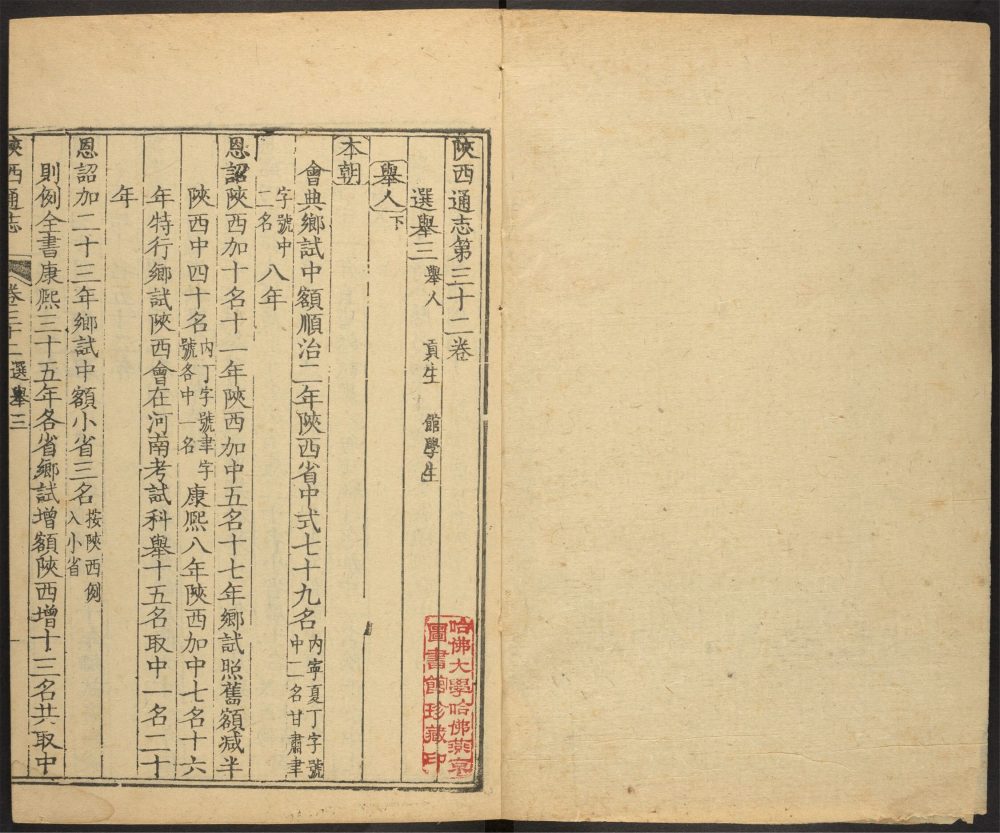 陝西通志第三十二卷
選舉三 舉人 貢生 館學生
舉人下
本朝
會典鄉試中額順治二年陝西省中式七十九名內寧夏丁字號中二名甘肅聿
字號中二名八年
恩詔陝西加十名十一年陝西加中五名十七年鄉試照舊額減半
陝西中四十名內丁字號聿字號各中一名康熙八年陝西加中七名十六
年特行鄉試陝西會在河南考試科舉十五名取中一名二十
年
恩詔加二十三年鄉試中額小省三名按陝西例入小省
則例全書康熙三十五年各省鄉試增額陝西增十三名共取中
陝西通志 卷三十二選舉三
哈佛大學哈佛燕京
圖書館珍藏印